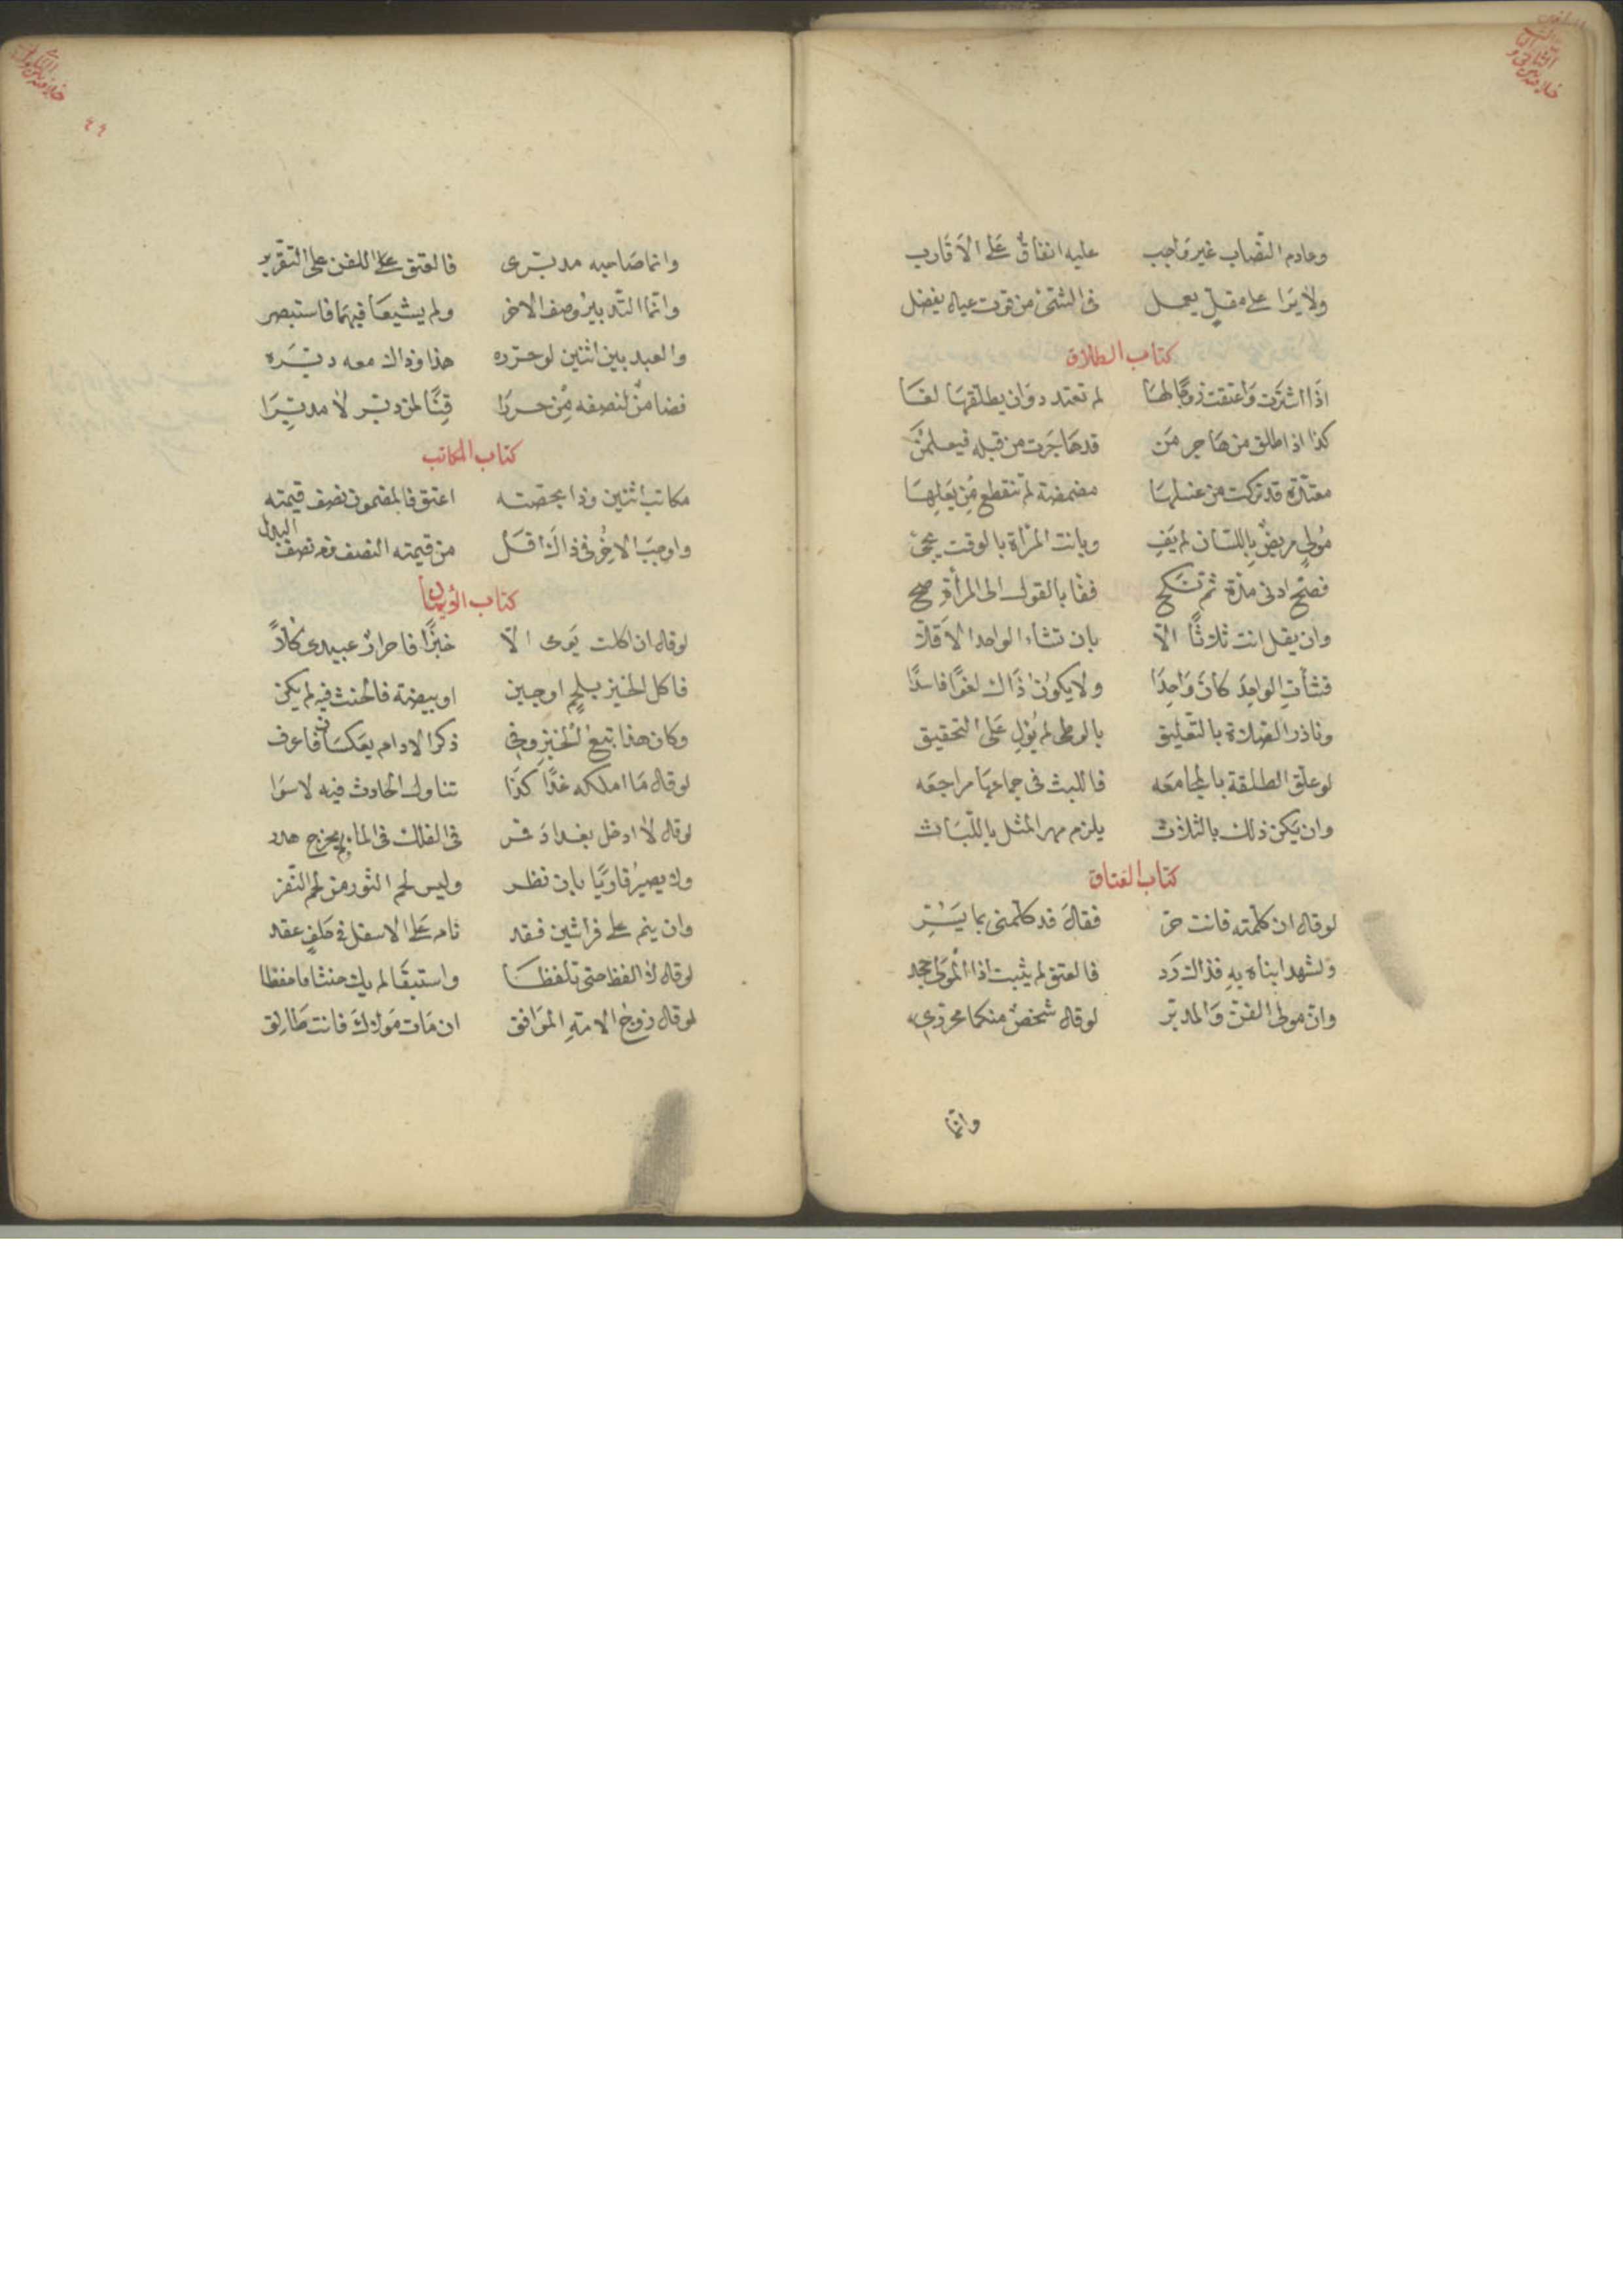 وعادم النصاب غير واجب عليه انفاق على الاقارب
ولا يرا على مقل يعمل في الشئ من قوت عياله يفضل
كتاب الطلاق
اذا اشترت واعتقت زوجا لها لم تعتد دوان يطلقها لغا
كذا اذا طلق من هاجر من قد هاجرت من قبله فيعلمن
معتدة قد تركت من غسلها مضمضة لم تنقطع من بعلها
مولي مريض باللسان لم يف وبانت المرأة بالوقت يجي
فصح ادنى مدة ثم تنكح ففا بالقول الى المرأة صح
وان يقل انت ثلاثا الا بان تشاء الواحد الاقلا
فشأت الواحد كان واحدا ولا يكون ذاك لغوا فاسدا
وناذر الصلاة بالتعليق بالوطى لم يول على التحقيق
لو علق الطلقة بالمجامعه فاللبث في جماعها مراجعه
وان يكن ذلك بالثلاث يلزم مهر المثل باللباث
كتاب العتاق
لو قال ان كلمته فانت حر فقال قد كلمني بما يسر
ولشهد ابناه به فذاك رد فالعتق لم يثبت اذا المولى جحد
وان مولى القن والمدبر لو قال شخص منكما محرري
وانما
٤٤
وانما صاحبه مدبري فالعتق على القن على التقرير
وانما التدبير وصف الاخر ولم يشيعا فيهما فاستبصر
والعبد بين اثنين لو حرره هذا وذاك معه دبره
فضامن لنصفه من حررا قنا لمن دبر لا مدبرا
كتاب المكاتب
مكاتب اثنين وذا بحصته اعتق فالمضمون نصف قيمته
واوجب الاخر في ذاك اقل من قيمته النصف ومن نصف البدل
كتاب الايمان
لو قال ان اكلت يومي الا خبزا فاحرار عبيدي كلا
فاكل الخبز بلحم او جبن او بيضة فالحنث فيه لم يكن
وكان هذا تبع الخبز وفي ذكر الادام يعكسان فاعرف
لو قال ما املكه غدا كذا تناول الحادث فيه لا سوا
لو قال لا ادخل بغداد فمر في الفلك في الما يحرج هدر
ولا يصير قاريا بان نظر وليس لحم الثور من لحم البقر
وان ينم على فراشين فقد نام على الاسفل في حلف عقد
لو قال لا الفظ حتى تلفظا واستبقا لم يك حنثا ما مفظا
لو قال زوج الامة الموافق ان مات مولاك فانت طالق